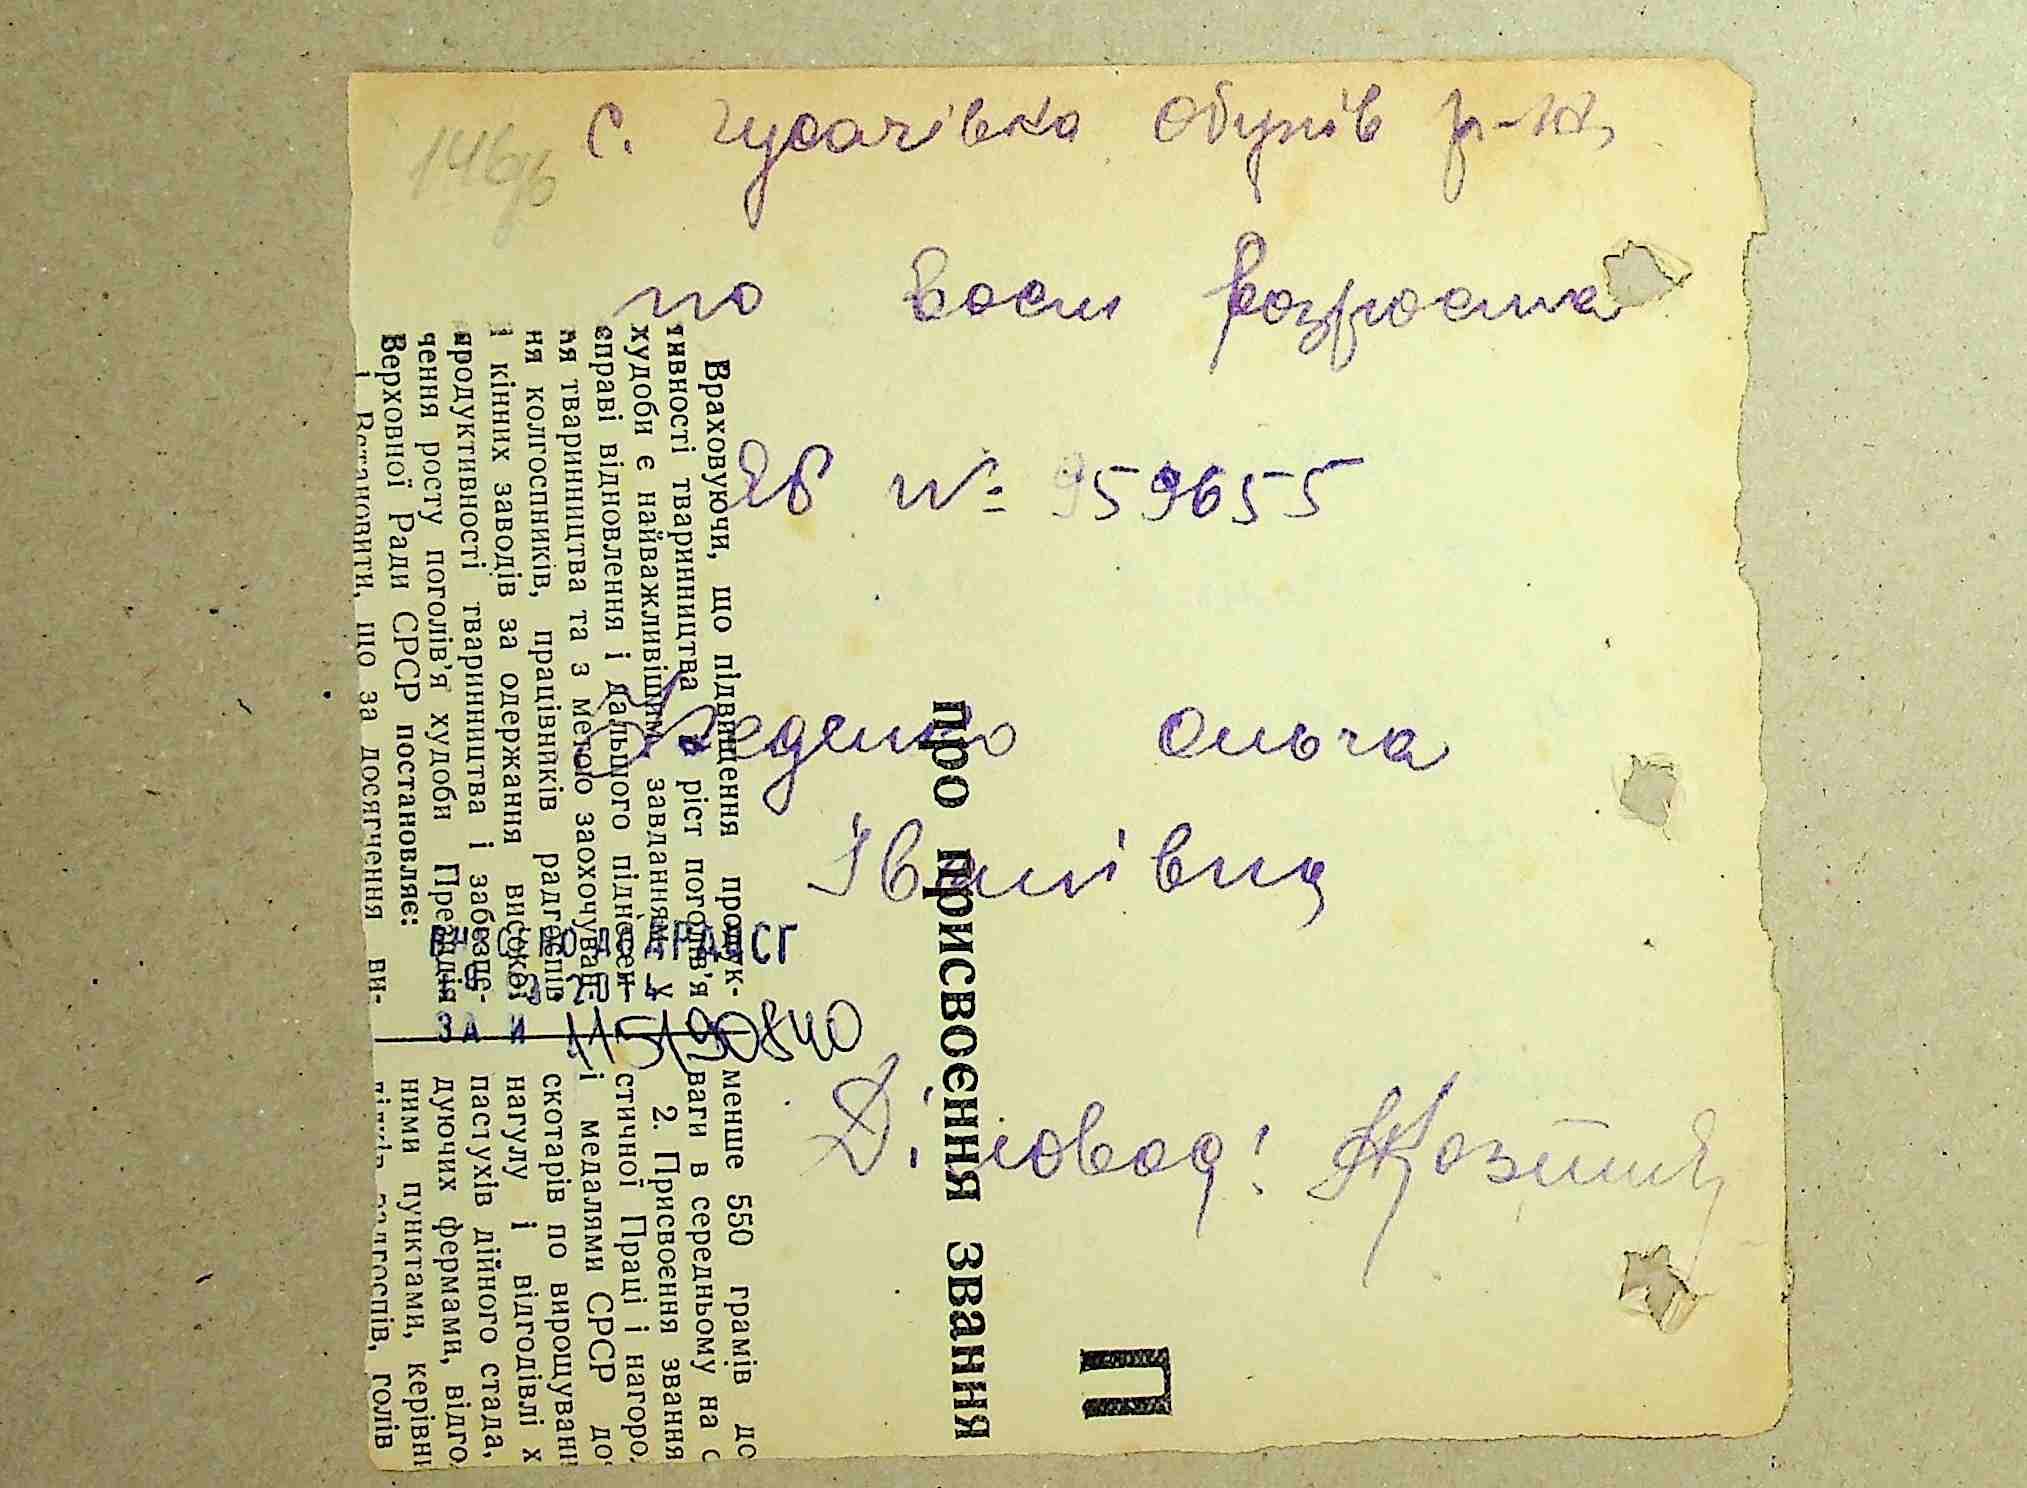 146
с. гусачівка Обухів р-н,
по воєн возроста
ЯБ № 959655
Феденко Ольга
Іванівна
Діловод:
11/5 1990840
ЗА
Враховуючи, що підвищення продук-
тивності тваринництва ріст поголів'я
худоби є найважливішим завданням у
справі відновлення і дальшого піднесен-
ня тваринництва та з метою заохочуван-
ня колгоспників, працівників радгоспів
і кінних заводів за одержання високої
продуктивності тваринництва і забезпе-
чення росту поголів'я худоби Президія
Верховної Ради СРСР постановляє:
і Встановити, що за досягнення ви-
менше 550 грамів до
ваги в середньому на
2. Присвоєння звання
стичної Праці і нагоро
і медалями СРСР до
скотарів по вирощуван
нагулу і відгодівлі х
пастухів дійного стада,
дуючих фермами, відго
ними пунктами, керівн
радгоспів, голів
про присвоєння звання
П